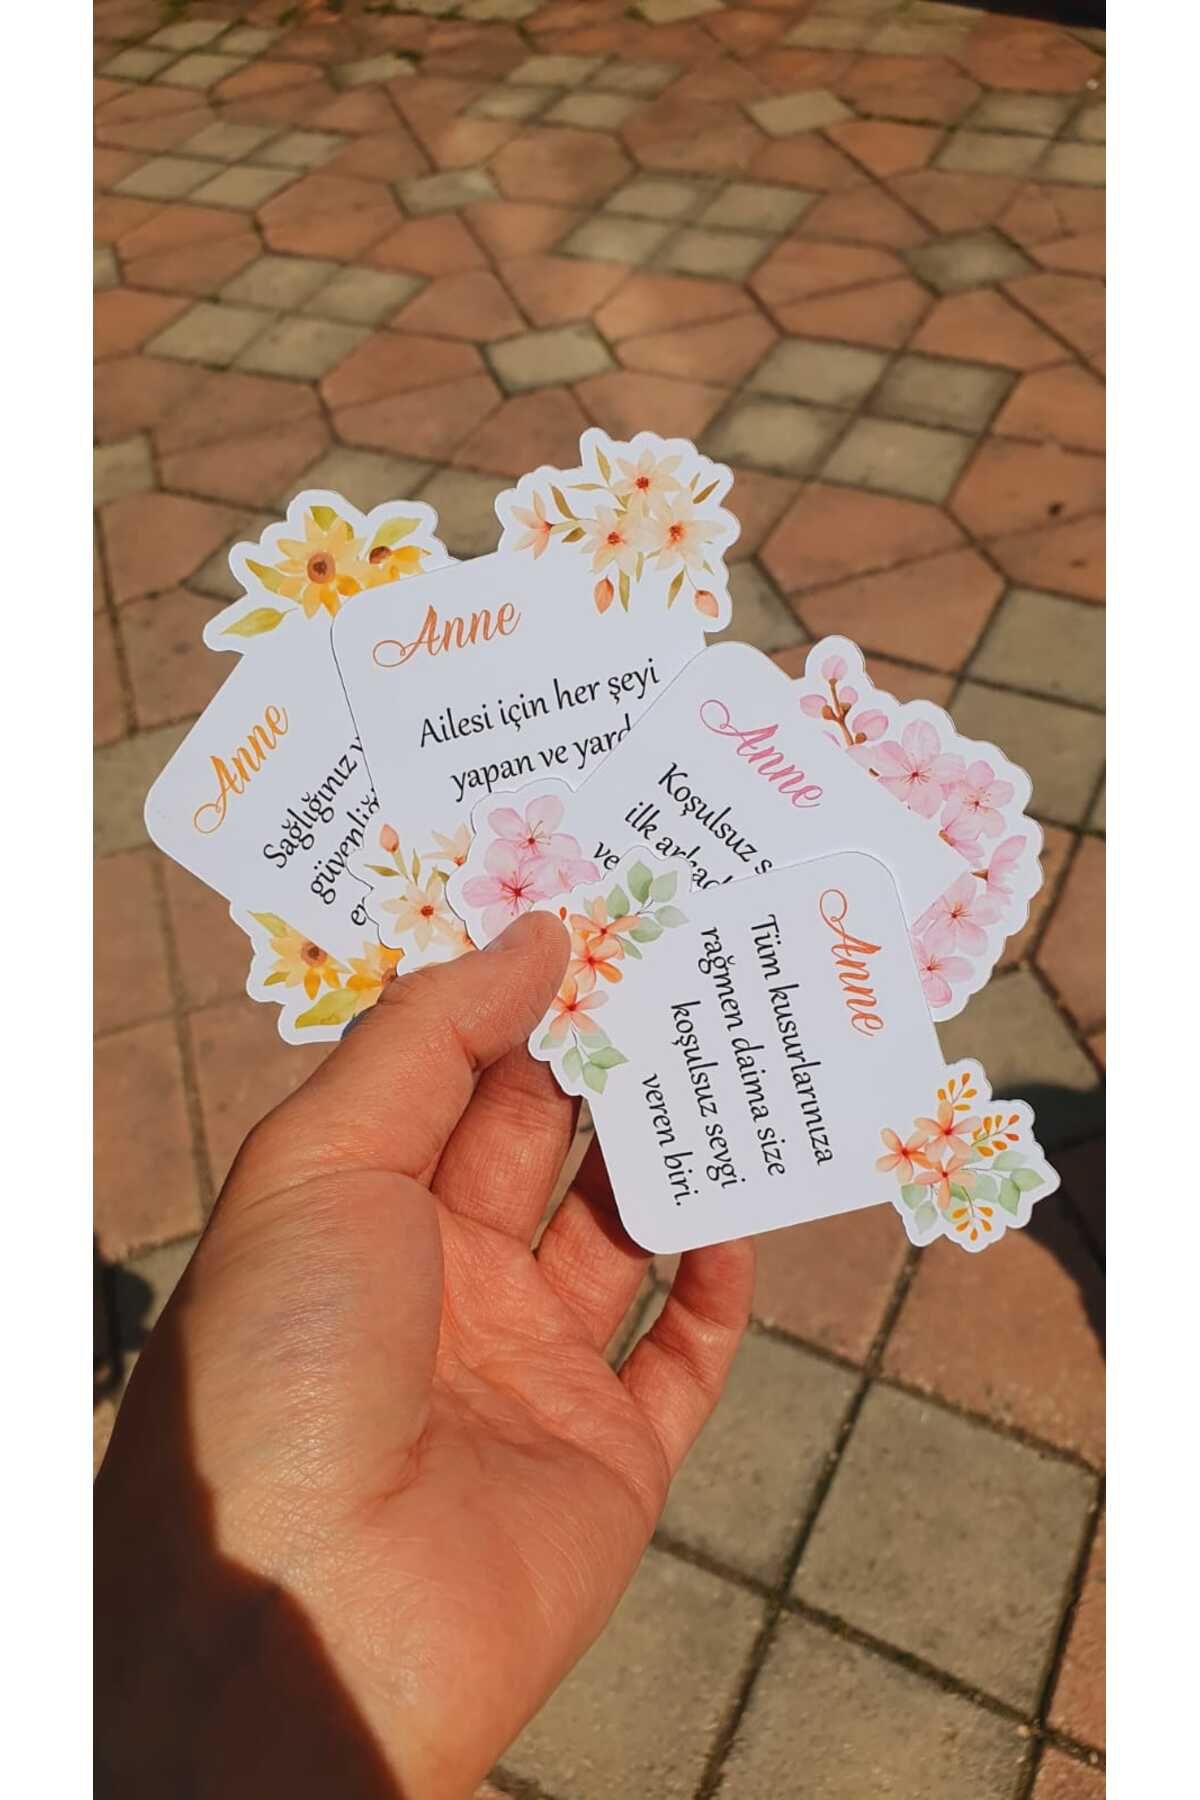 Anne
Sağlığınız
güvenliğ
Anne
Ailesi için her şeyi
yapan ve yard
Anne
Koşulsuz s
ilk arkad
ve
Anne
Tüm kusurlarınıza
rağmen daima size
koşulsuz sevgi
veren biri.